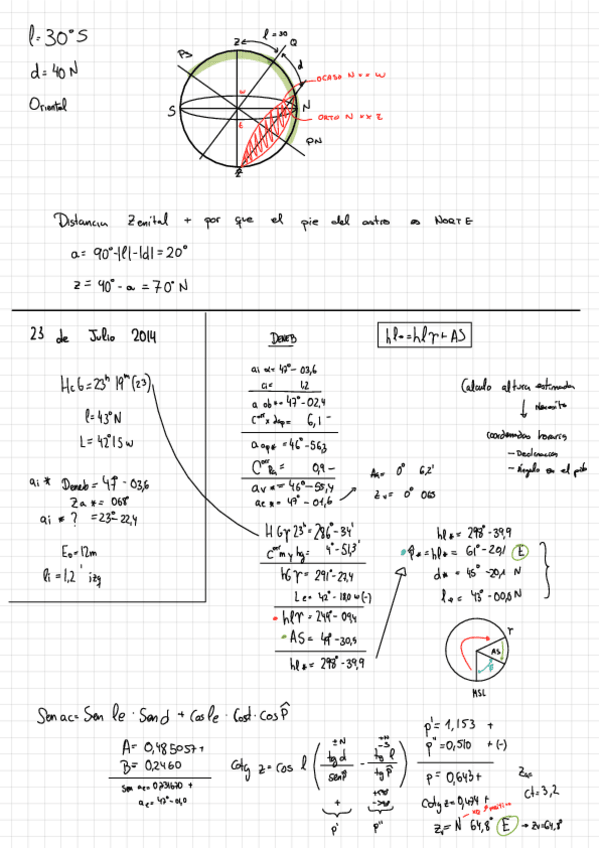 l=30°S
d=40N
Oriental
Z
l=30
Q
d
PS
OCASO N xx W
S
N
ORTO N xx E
PN
W
E
Distancia Zenital + por que el pie del astro es NORTE
a= 90°-|l|-|d|=20°
z= 90°-a =70°N
23 de Julio 2014
HcG=23h 19m(23)
l=43°N
L=42°15w
ai * Deneb= 47° - 03,6
Za *= 068°
ai * ? =23°-22,4
Eo=12m
li=1,2' izq
DENEB
hl*=hlγ+AS
ai *= 47° - 03,6
ci= 1,2
a ob *= 47° -02,4
Corr x dep= 6,1 -
a ap*=46°-56,3
Corr Ra= 0,9 -
av *= 46° -55,4
ae *= 47° -01,6
Aa= 0° 6,2'
Zv= 0° 065
Calculo altura estimada
Necesito
coordenadas horarias
- Declinación
- Angulo en el polo
HGγ 23h =286°-34'
Corr m y hg= 4°-51,3'
hGγ= 291°-27,4
Le= 42° - 18,0 w(-)
hlγ= 249°-09,4
AS= 49°-30,5
hl*= 298°-39,9
hl*= 298° -39,9
P*=hl*= 61° -20,1 E
d*= 45° -20,1 N
l*= 43° -00,0 N
γ
AS
P
MSL
Sen ac= Sen le · Sen d + Cos le · Cos d · cos P̂
A= 0,485057+
B= 0,2460
Sen ae= 0,731670 +
ae= 47° -01,0
cotg z=cos l ( tg d / sen P̂ - tg l / tg P̂ )
±N
+N
-S
+
p'
p''
p'=1,153 +
p''=0,510 +(-)
p=0,643+
cotg z=0,474 +
Zv= N 64,8° E → Zv=64,8°
ct=3,2